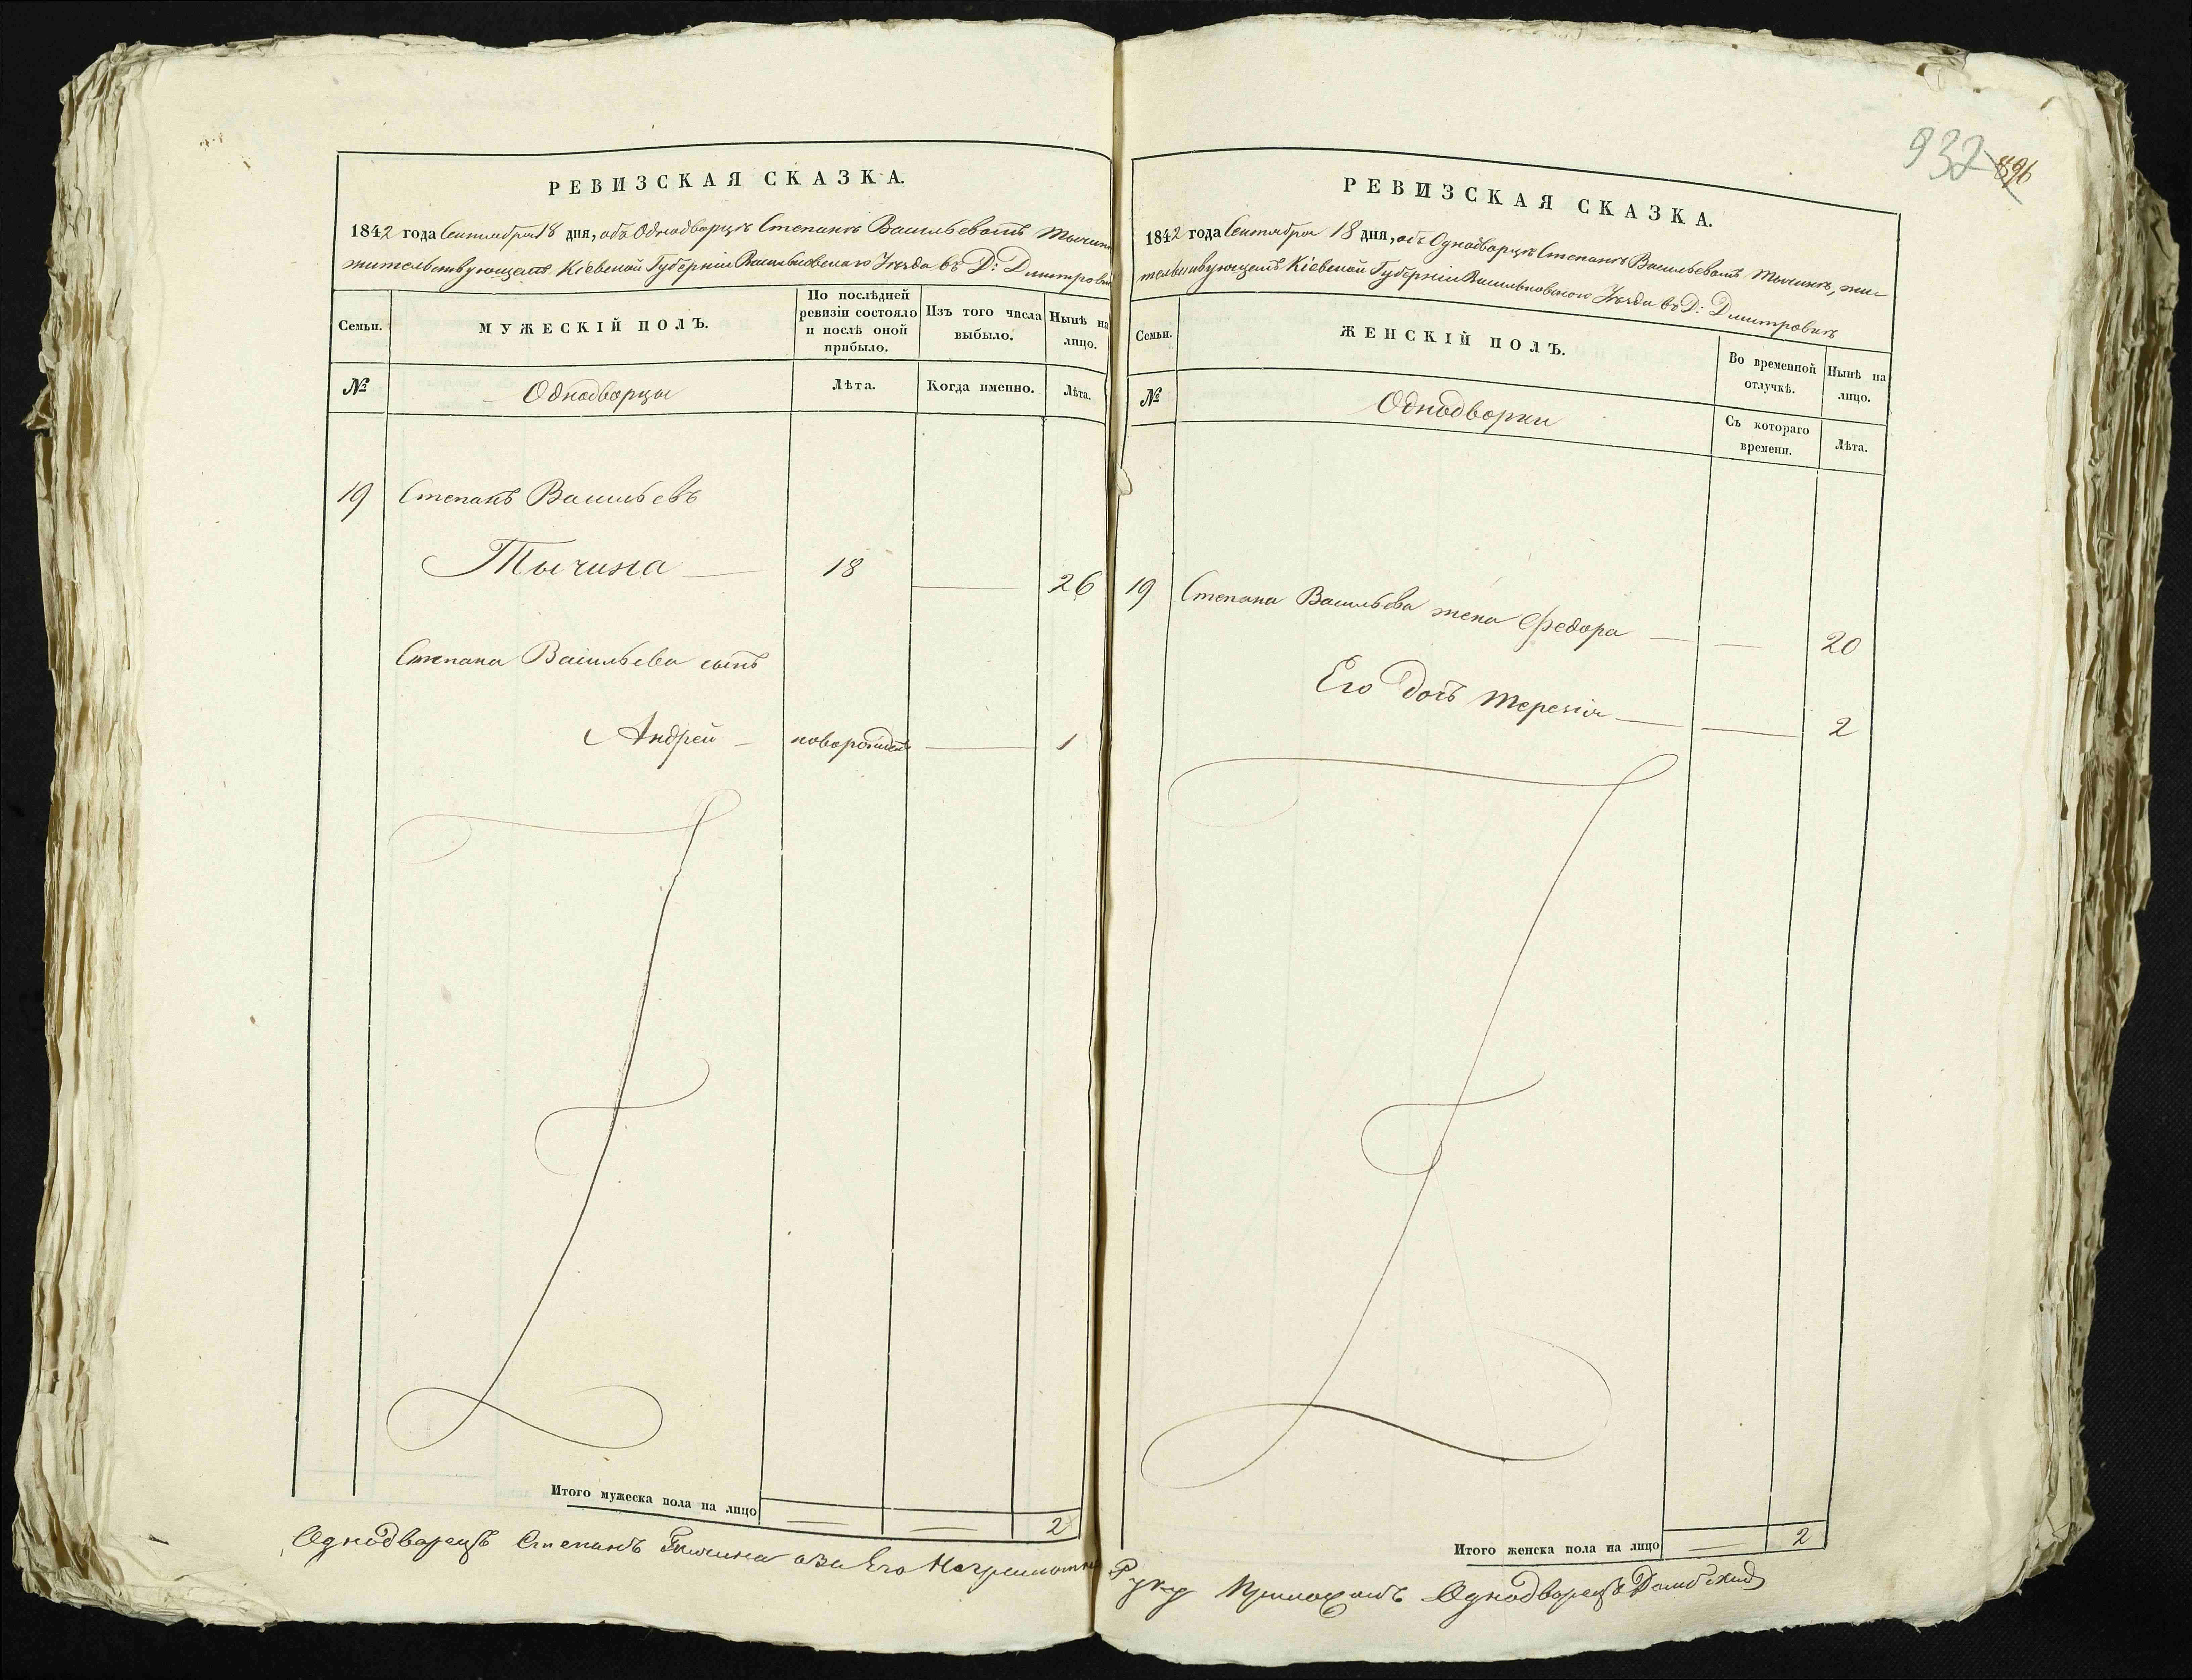 РЕВИЗСКАЯ СКАЗКА.
1842 года Сентября 18 дня, объ Однодворцѣ Степанѣ Васильевомъ Тычин
жительствующемъ Кіевской Губерніи Васильковскаго Уѣзда въ Д: Дмитров
Семьи.
МУЖЕСКІЙ ПОЛЪ.
По послѣдней ревизіи состояло и послѣ оной прибыло.
Изъ того числа выбыло.
Нынѣ на лицо.
№
Однодворцы
Лѣта.
Когда именно.
Лѣта.
19 Степанъ Васильевъ
Тычина — 18 — 26
Степана Васильева сынъ
Андрей — новорожден — 1
Итого мужеска пола на лицо 2
Однодворецъ Степанъ Тычина а за Его Неграмотн
932 896
РЕВИЗСКАЯ СКАЗКА.
1842 года Сентября 18 дня, объ Однодворцѣ Степанѣ Васильевомъ Тычинѣ, жи-
тельствующемъ Кіевской Губерніи Васильковскаго Уѣзда въ Д: Дмитровкѣ
Семьи.
ЖЕНСКІЙ ПОЛЪ.
Во временной отлучкѣ.
Нынѣ на лицо.
№
Однодворки
Съ котораго времени.
Лѣта.
19 Степана Васильева жена Федора — — 20
Его дочь Терезія — — 2
Итого женска пола на лицо — 2
Руку Приложилъ Однодворецъ